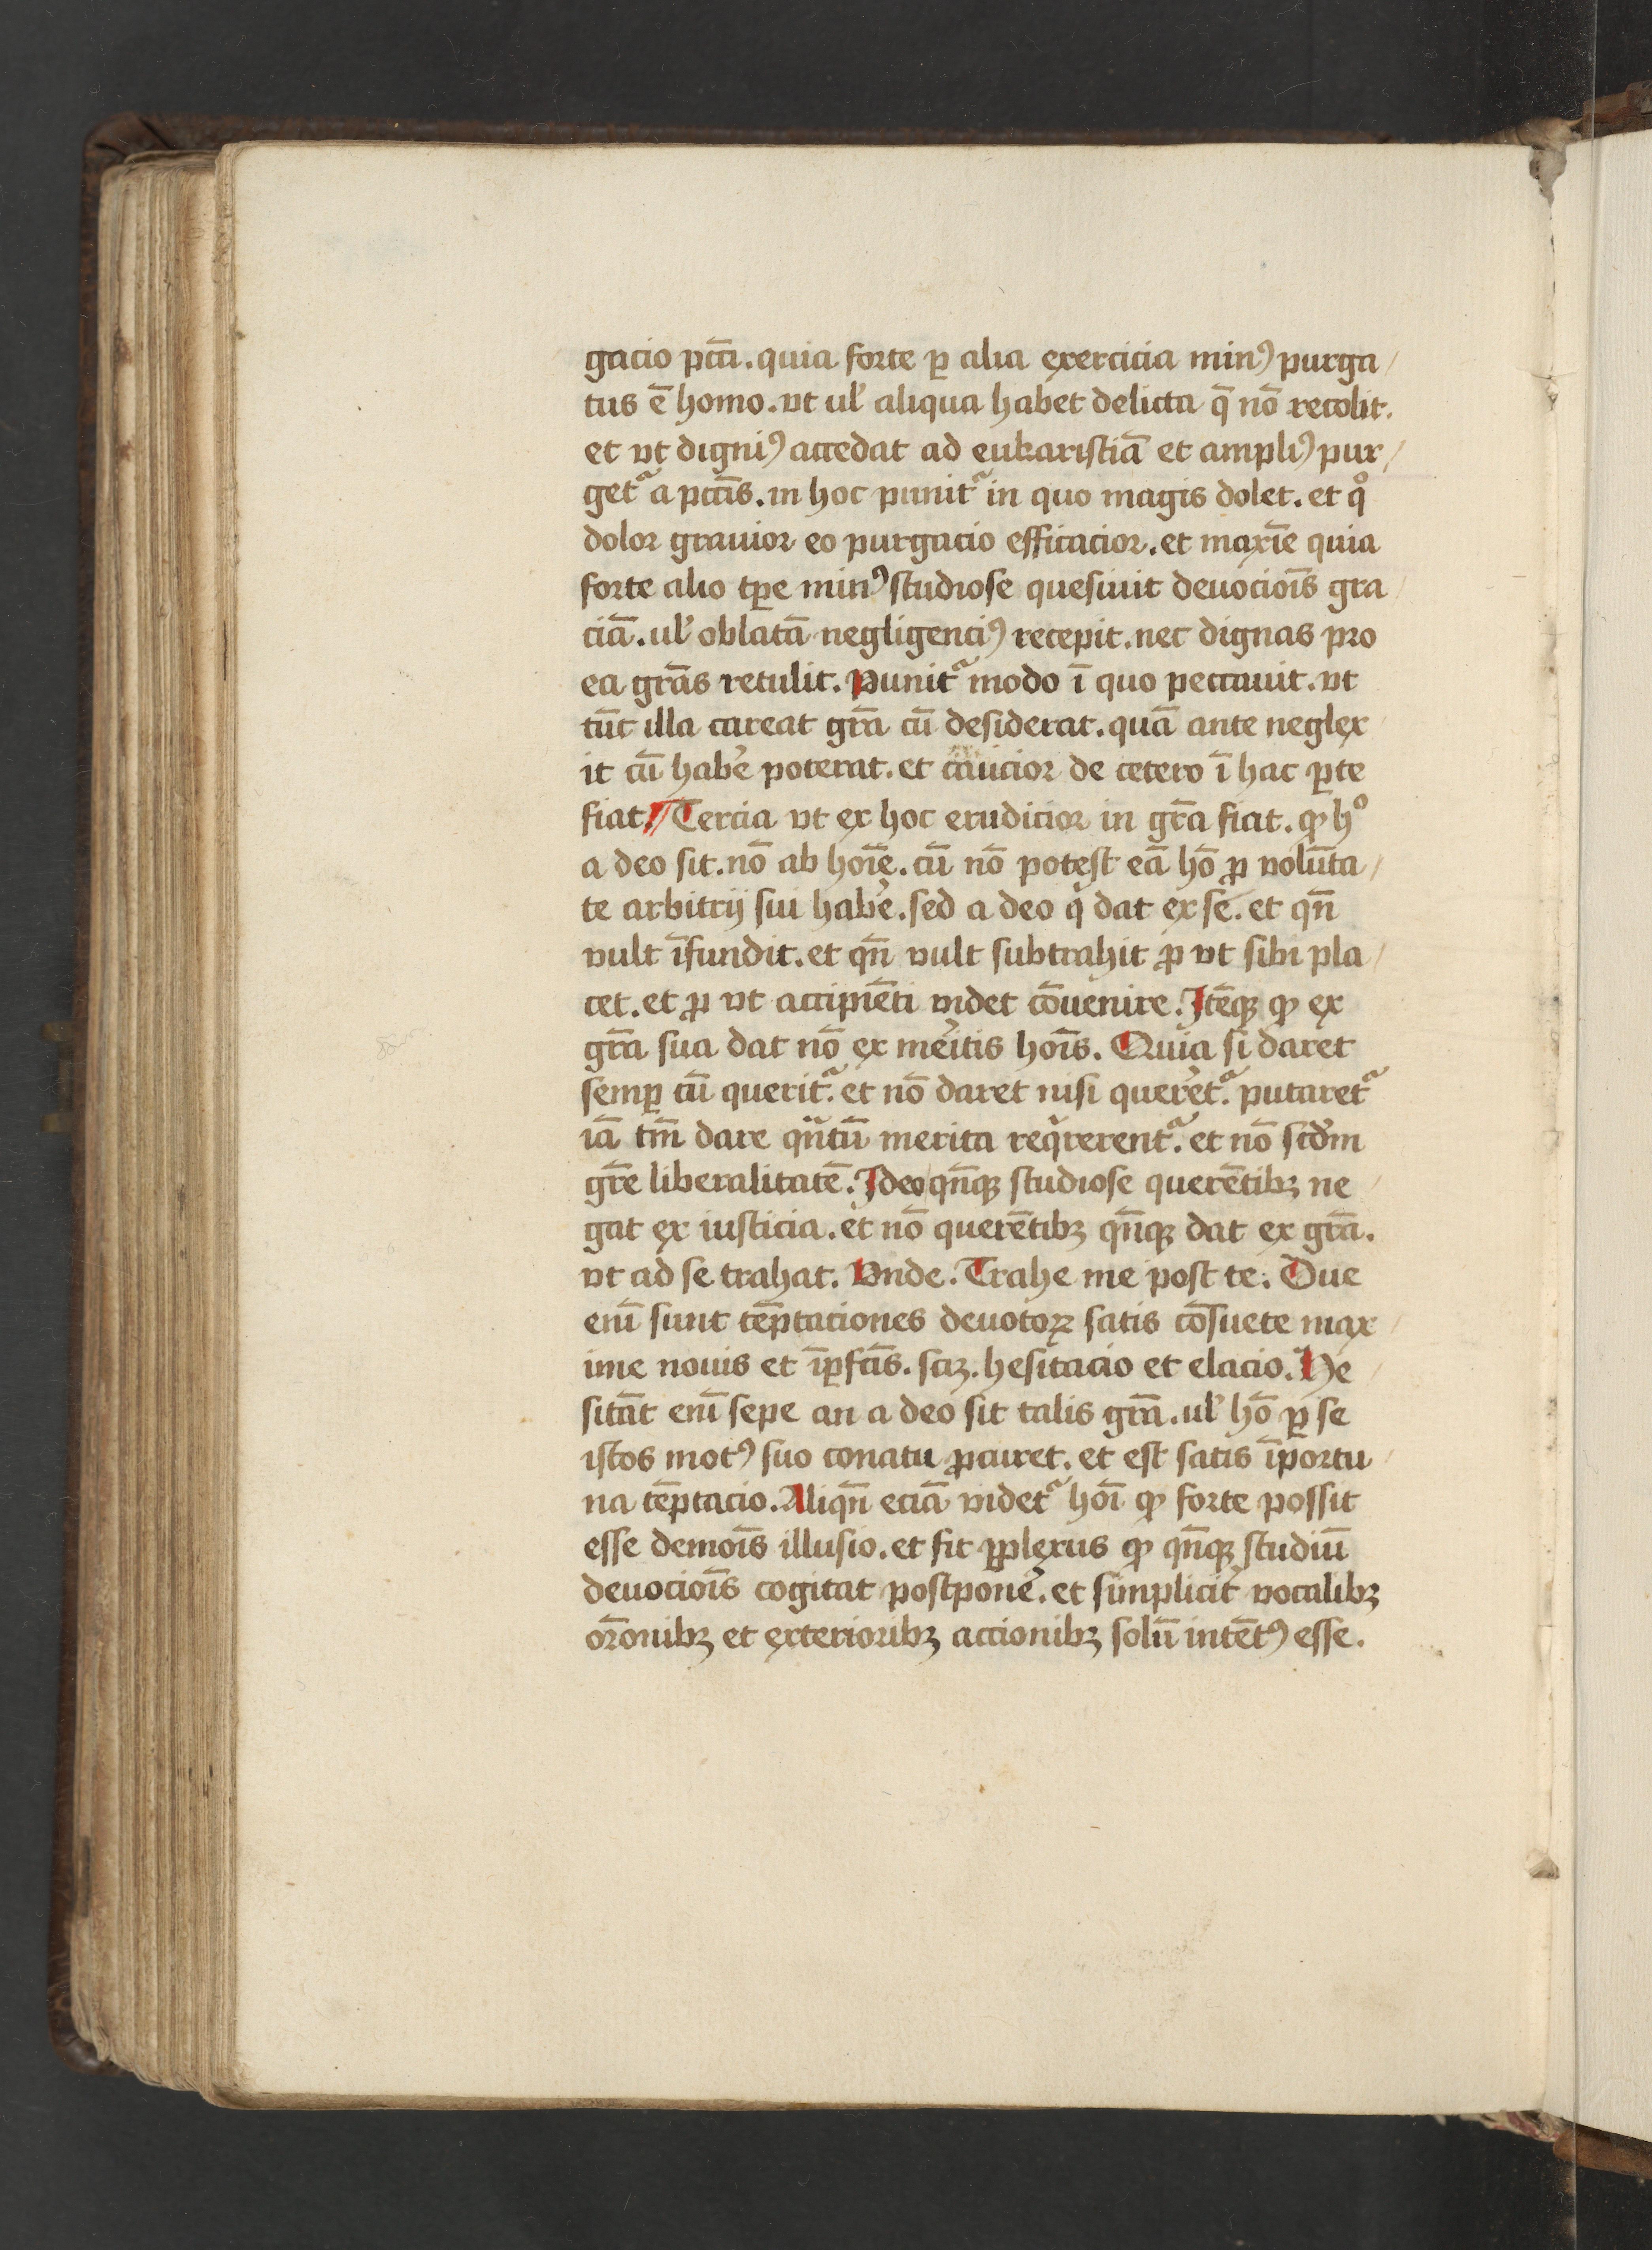 gacio pctī. quia forte ꝑ alia exercicia minꝰ purga/
tus ē homo. vt ul' aliqua habet delicta q̄ nō recolit.
et vt digniꝰ accedat ad eukaristiā et ampliꝰ pur/
getᷓ a pctīs. in hoc punitᷓ in quo magis dolet. et qͦ
dolor grauior eo purgacio efficacior. et maxīe quia
forte alio tꝑe minꝰ studiose quesiuit deuocioīs gra/
ciā. ul' oblatā negligenciꝰ recepit. nec dignas pro
ea grās retulit. Punitᷓ modo ī quo peccauit. vt
tūc illa careat grā cū desiderat. quā ante neglex/
it cū habe͛ poterat. et caucior de cetero ī hac ꝑte
fiat. Tercia vt ex hoc erudicior in grā fiat. ꝙ hͦ
a deo sit. nō ab hoīe. cū nō potest eā hō ꝓ volūta/
te arbitrij sui habe͛. sed a deo qͥ dat ex se. et qn̄
vult īfundit. et qn̄ vult subtrahit ꝓ vt sibi pla/
cet. et ꝓ vt accipiēti videt cōuenire. Itēqꝫ ꝙ ex
grā sua dat nō ex me͛itis hoīs. Quia si daret
semꝑ cū queritᷓ. et nō daret nisi quere͛tᷓ. putaretᷓ
iā tm̄ dare qᷓntū merita reqͥrerentᷓ. et nō scd͛m
gr̄e liberalitatē. Ideo qn̄qꝫ studiose querētibꝫ ne/
gat ex iusticia. et nō querētibꝫ qn̄qꝫ dat ex grā.
vt ad se trahat. Vnde. Trahe me post te. Due
enī sunt tēptaciones deuotoꝝ satis cōsuete max/
ime nouis et īꝑfctīs. scꝫ. hesitacio et elacio. He/
sitāt enī sepe an a deo sit talis grā. ul' hō ꝑ se
istos motꝰ suo conatu ꝓcuret. et est satis īportu/
na tēptacio. Aliqn̄ eciā videtᷓ hoī ꝙ forte possit
esse demoīs illusio. et fit ꝑplexus ꝙ qn̄qꝫ studiū
deuocioīs cogitat postpone͛. et simplicit͛ vocalibꝫ
or̄onibꝫ et exterioribꝫ accionibꝫ solū intētꝰ esse.